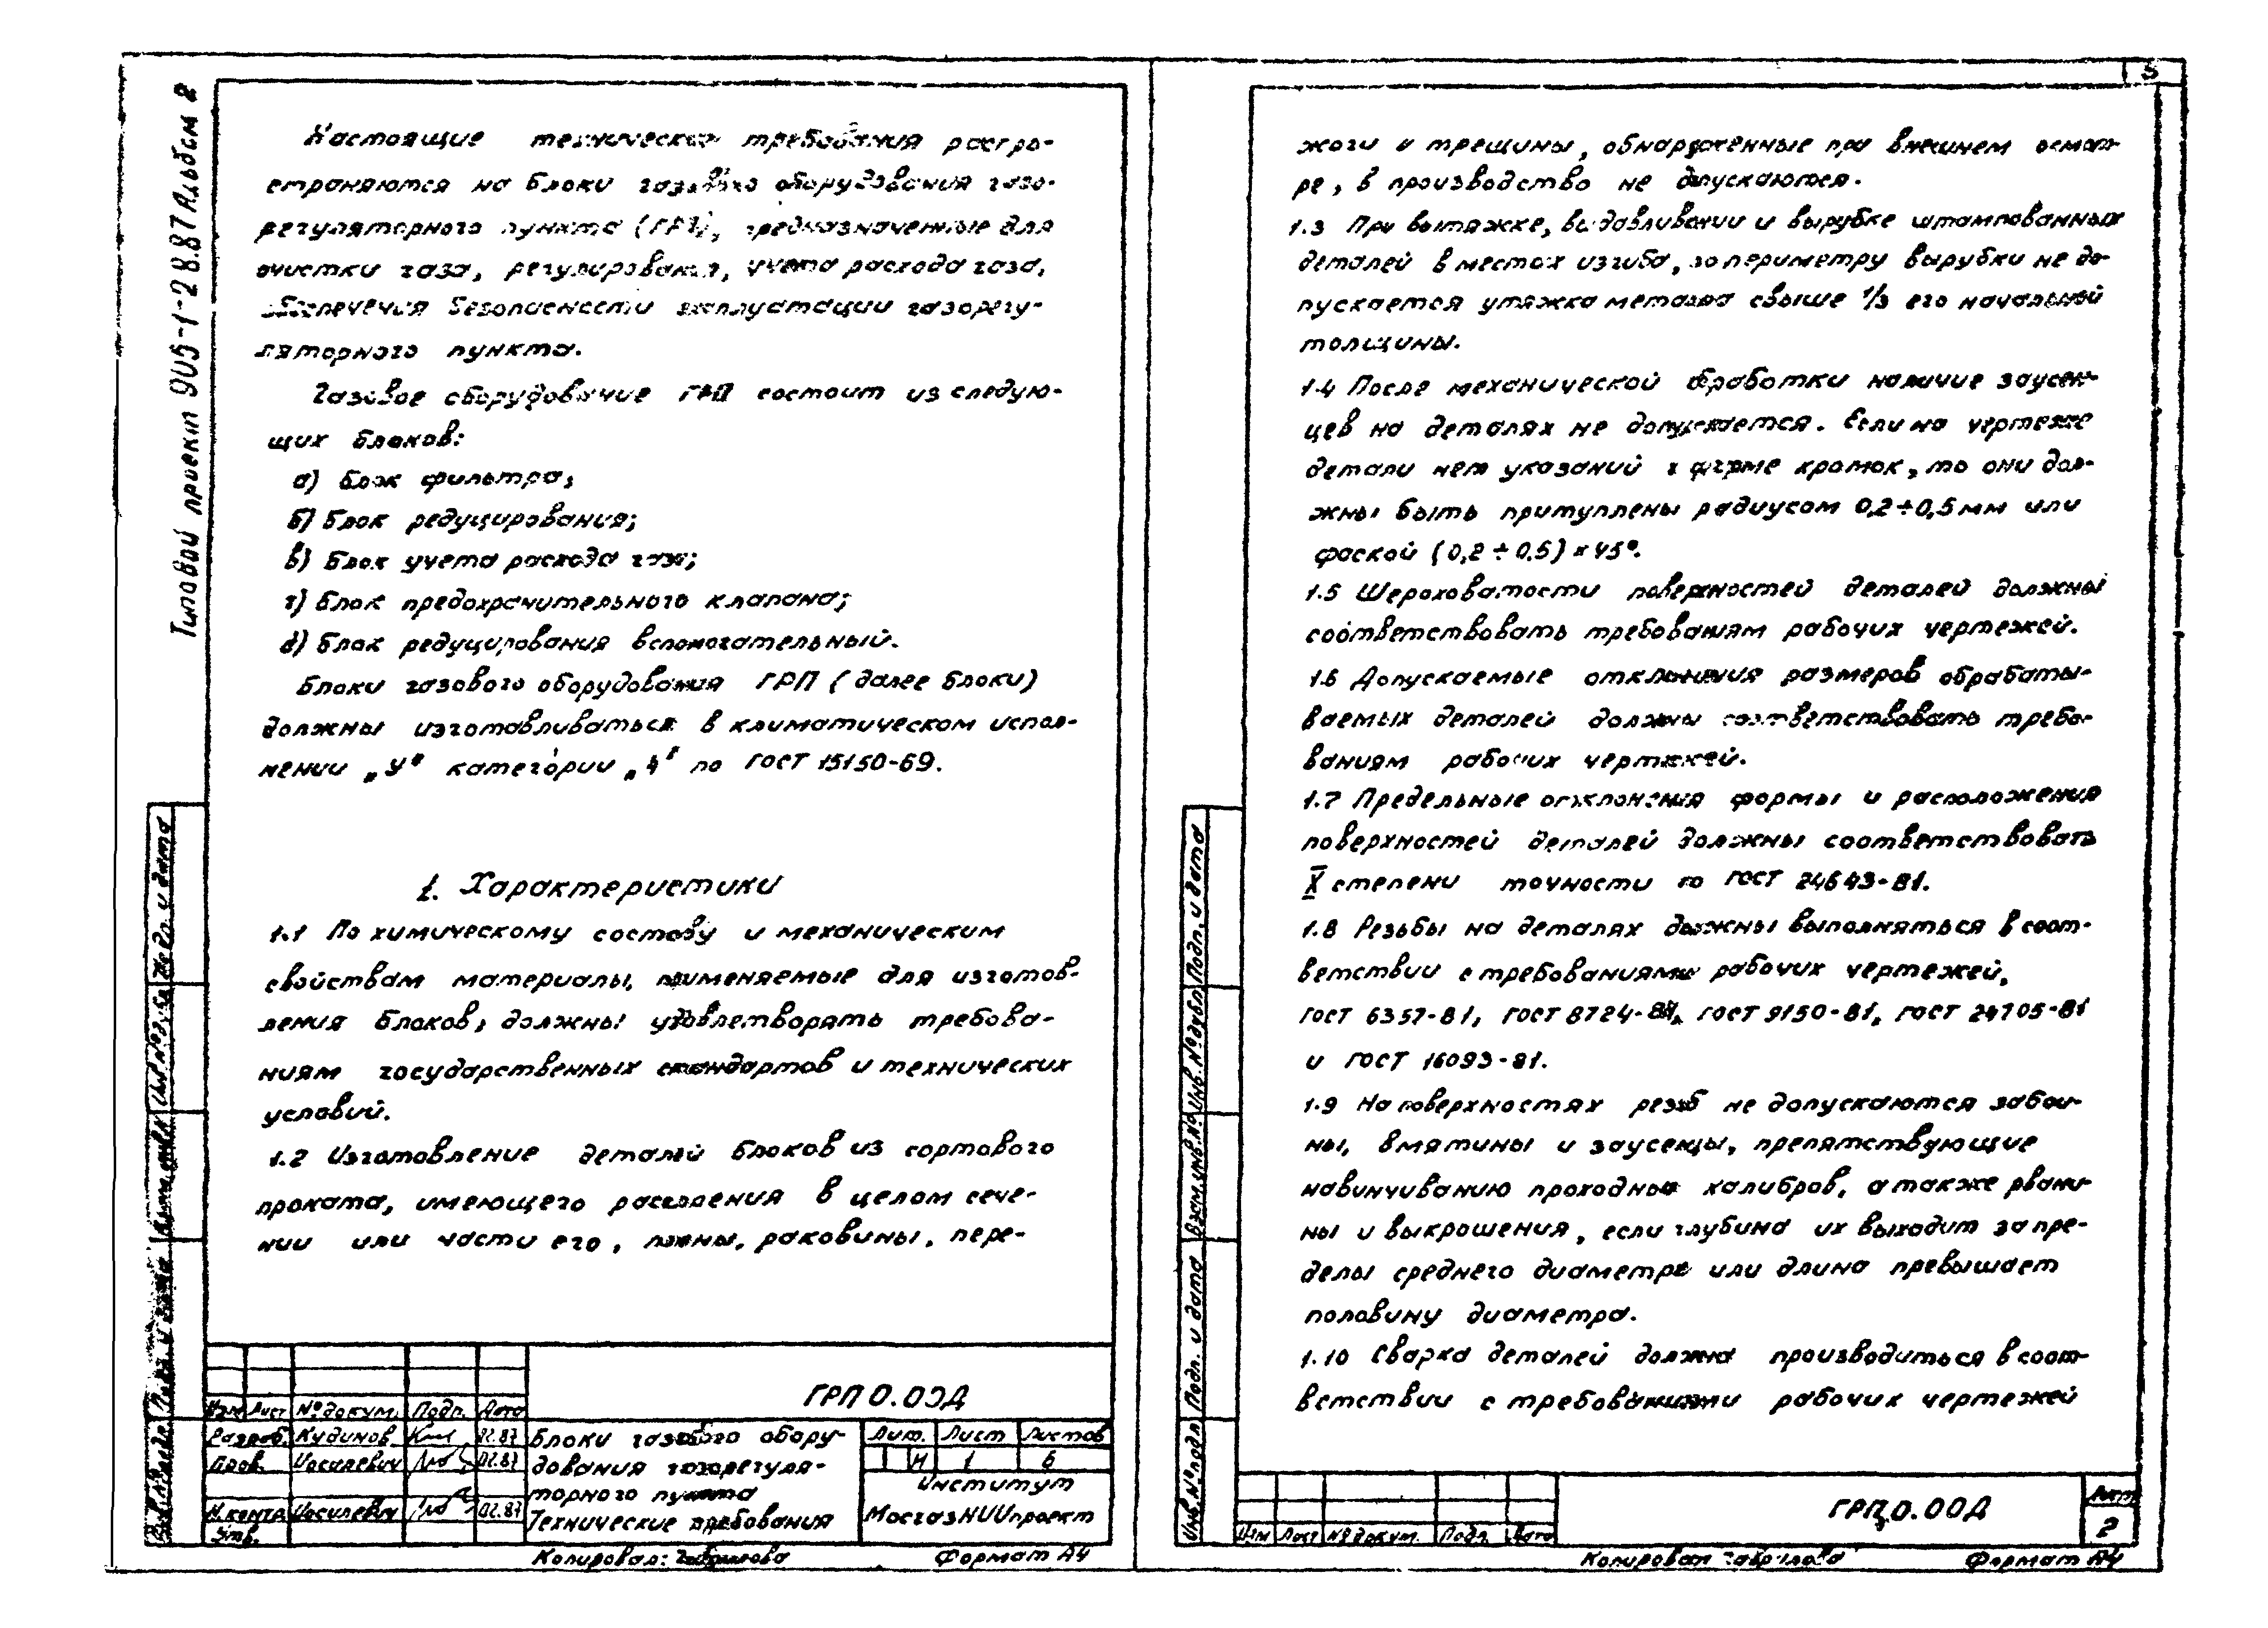 Типовой проект 905-1-28.87 Альбом 2
Настоящие технические требования распро-
страняются на блоки газового оборудования газо-
регуляторного пункта (ГРП), предназначенные для
очистки газа, регулирования, учета расхода газа,
обеспечения безопасности эксплуатации газорегу-
ляторного пункта.
Газовое оборудование ГРП состоит из следую-
щих блоков:
а) блок фильтра;
б) блок редуцирования;
в) блок учета расхода газа;
г) блок предохранительного клапана;
д) блок редуцирования вспомогательный.
Блоки газового оборудования ГРП (далее блоки)
должны изготавливаться в климатическом испол-
нении „У" категории „4" по ГОСТ 15150-69.
1. Характеристики
1.1 По химическому составу и механическим
свойствам материалы, применяемые для изготов-
ления блоков, должны удовлетворять требова-
ниям государственных стандартов и технических
условий.
1.2 Изготовление деталей блоков из сортового
проката, имеющего расслоения в целом сече-
нии или части его, плены, раковины, пере-
Изм Лист № докум. Подп. Дата
Разраб. Кудинов 02.87
Пров. Иосилевич 02.87
Н.контр. Иосилевич 02.87
Утв.
ГРП 0.00Д
Блоки газового обору-
дования газорегуля-
торного пункта
Технические требования
Лит. Лист Листов
И 1 6
Институт
МосгазНИИпроект
Копировал: Гаврилова Формат А4
5
жоги и трещины, обнаруженные при внешнем осмот-
ре, в производство не допускаются.
1.3 При вытяжке, выдавливании и вырубке штампованных
деталей в местах изгиба, по периметру вырубки не до-
пускается утяжка металла свыше 1/3 его начальной
толщины.
1.4 После механической обработки наличие заусен-
цев на деталях не допускается. Если на чертеже
детали нет указаний о форме кромок, то они дол-
жны быть притуплены радиусом 0,2÷0,5 мм или
фаской (0,2÷0,5)×45°.
1.5 Шероховатости поверхностей деталей должны
соответствовать требованиям рабочих чертежей.
1.6 Допускаемые отклонения размеров обрабаты-
ваемых деталей должны соответствовать требо-
ваниям рабочих чертежей.
1.7 Предельные отклонения формы и расположения
поверхностей деталей должны соответствовать
X степени точности по ГОСТ 24643-81.
1.8 Резьбы на деталях должны выполняться в соот-
ветствии с требованиями рабочих чертежей,
ГОСТ 6357-81, ГОСТ 8724-81, ГОСТ 9150-81, ГОСТ 24705-81
и ГОСТ 16093-81.
1.9 На поверхностях резьб не допускаются забои-
ны, вмятины и заусенцы, препятствующие
навинчиванию проходных калибров, а также рвани-
ны и выкрошения, если глубина их выходит за пре-
делы среднего диаметра или длина превышает
половину диаметра.
1.10 Сварка деталей должна производиться в соот-
ветствии с требованиями рабочих чертежей
Инв.№ подл Подп. и дата Взам.инв.№ Инв.№ дубл Подп. и дата
Изм Лист № докум. Подп. Дата
ГРП 0.00Д
Лист
2
Копировал Гаврилова Формат А4